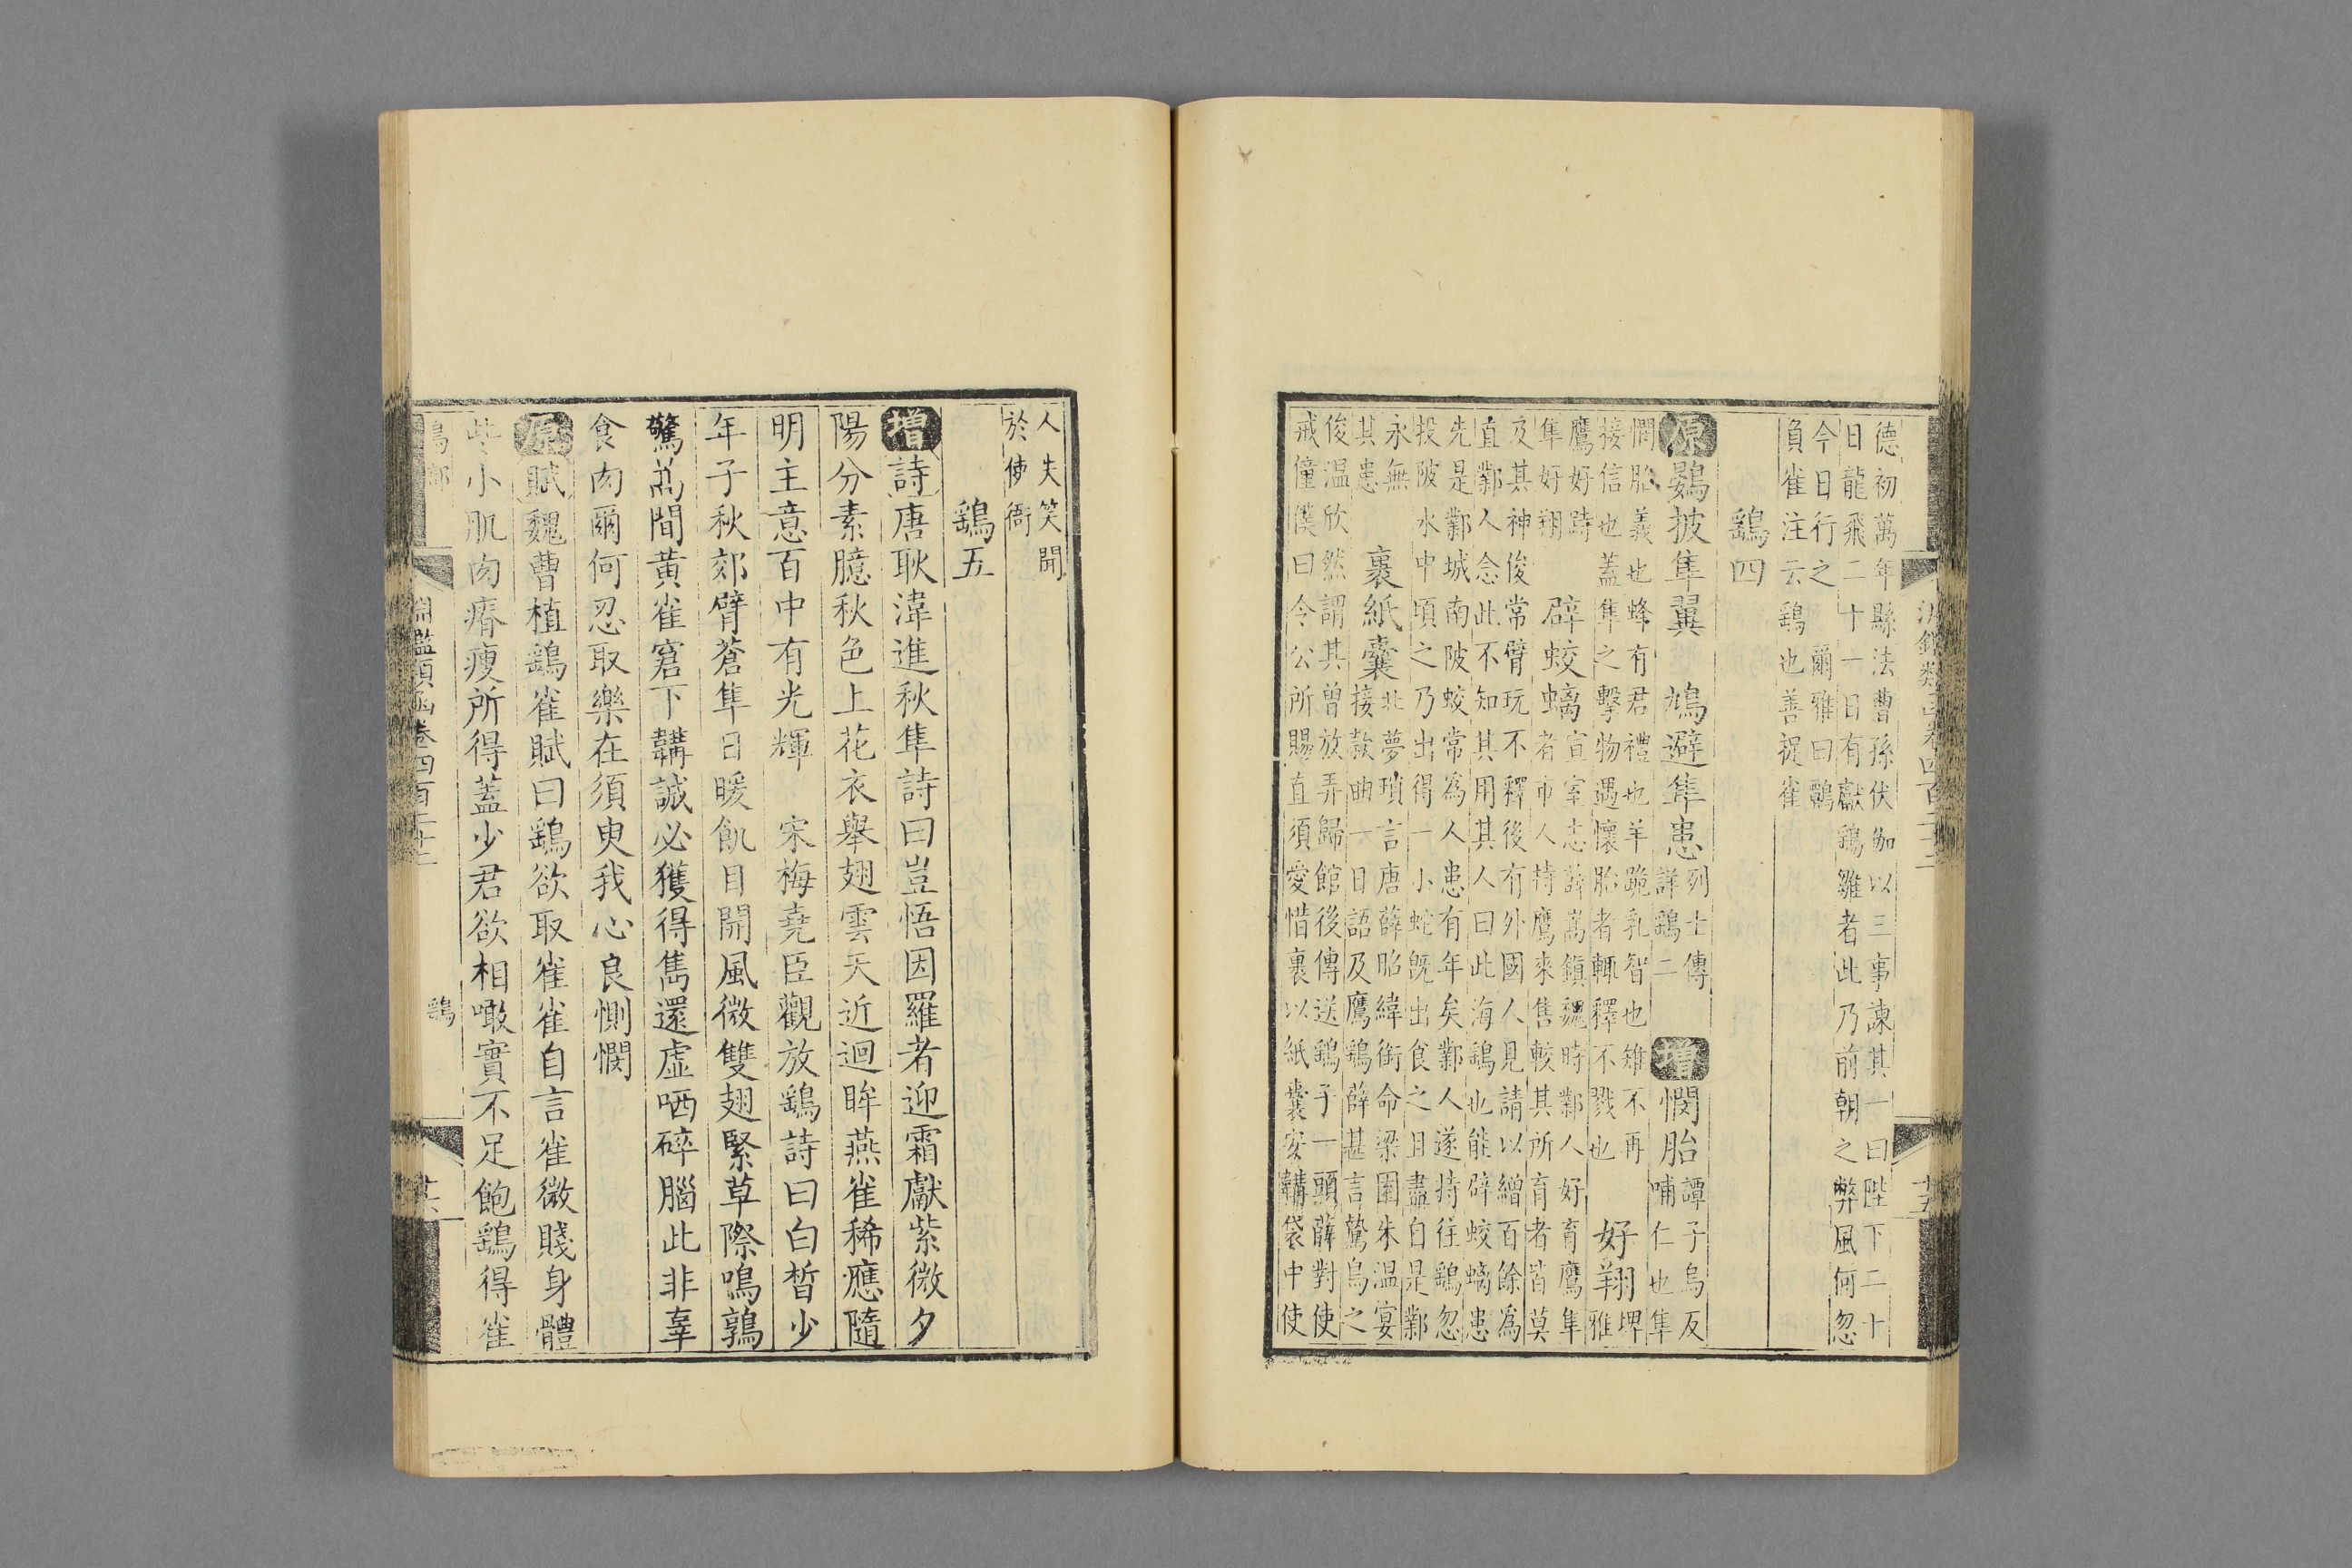 淵鑑類函卷四百二十二 廿五
德初萬年縣法曹孫伏伽以三事諫其一曰陛下二十
日龍飛二十一日有獻鷂雛者此乃前朝之弊風何忽
今日行之 爾雅曰鸇
負雀注云鷂也善捉雀
鷂四
原鷃披隼翼 鳩避隼患 列士傳
詳鷂二 增憫胎 譚子烏反
哺仁也隼
憫胎義也蜂有君禮也羊跪乳智也雉不再
接信也蓋隼之擊物遇懷胎者輒釋不戮也 好翔 埤
雅
鷹好跱
隼好翔 辟蛟螭 宣室志薛嵩鎭魏時鄴人好育鷹隼
者市人持鷹來售較其所育者皆莫
及其神俊常臂玩不釋後有外國人見請以繒百餘爲
直鄴人念此不知其用其人曰此海鷂也能辟蛟螭患
先是鄴城南陂蛟常爲人患有年矣鄴人遂持往鷂忽
投陂水中頃之乃出得一小蛇旣出食之且盡自是鄴
永無
其患 裹紙囊 北夢瑣言唐薛昭緯銜命梁園朱温宴
接款曲一日語及鷹鷂薛甚言鷙鳥之
俊温欣然謂其曾放弄歸館後傳送鷂子一頭薛對使
戒僮僕曰令公所賜直須愛惜裹以紙囊安鞲袋中使
人失笑聞
於使衙
鷂五
增詩唐耿湋進秋隼詩曰豈悟因羅者迎霜獻紫微夕
陽分素臆秋色上花衣舉翅雲天近迴眸燕雀稀應隨
明主意百中有光輝 宋梅堯臣觀放鷂詩曰白晳少
年子秋郊臂蒼隼日暖飢目開風微雙翅緊草際鳴鶉
驚蒿間黃雀窘下鞲誠必獲得雋還虛哂碎腦此非辜
食肉爾何忍取樂在須臾我心良惻憫
原賦魏曹植鷂雀賦曰鷂欲取雀雀自言雀微賤身體
些小肌肉瘠瘦所得蓋少君欲相噉實不足飽鷂得雀
鳥部 淵鑑類函卷四百二十二 鷂 廿六